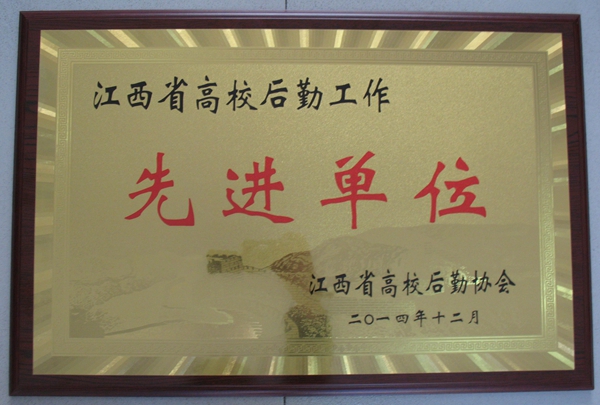 江西省高校后勤工作
先进单位
江西省高校后勤协会
二〇一四年十二月